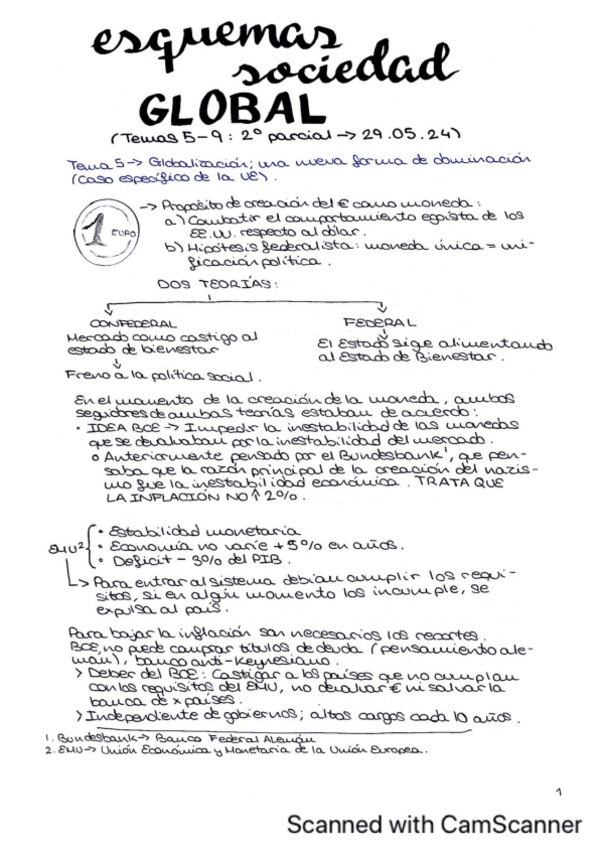 esquemas
sociedad
GLOBAL
(Temas 5-9: 2º parcial → 29.05.24)
Tema 5 → Globalización; una nueva forma de dominación
(Caso específico de la UE).
1 EURO
→ Propósito de creación del € como moneda:
a) Combatir el comportamiento egoísta de los
EE.UU. respecto al dólar.
b) Hipótesis federalista: moneda única = uni-
ficación política.
DOS TEORÍAS:
CONFEDERAL
Mercado como castigo al
estado de bienestar
Freno a la política social.
FEDERAL
El Estado sige alimentando
al Estado de Bienestar.
En el momento de la creación de la moneda, ambos
seguidores de ambas teorías estaban de acuerdo:
• IDEA BCE → Impedir la inestabilidad de las monedas
que se devaluaban por la inestabilidad del mercado.
o Anteriormente pensado por el Bundesbank¹, que pen-
saba que la razón principal de la creación del nazis-
mo fue la inestabilidad económica. TRATA QUE
LA INFLACIÓN NO ↑ 2%.
EMU²
• Estabilidad monetaria
• Economía no varíe + 5% en años.
• Deficit - 3% del PIB.
↳ Para entrar al sistema debían cumplir los requi-
sitos, si en algún momento los incumple, se
expulsa al país.
Para bajar la inflación son necesarios los recortes.
BCE, no puede comprar títulos de deuda (pensamiento ale-
mán), banco anti-Keynesiano.
> Deber del BCE: Castigar a los países que no cumplan
con los requisitos del EMU, no devaluar € ni salvar la
banca de x países.
> Independiente de gobiernos; altos cargos cada 10 años.
1. Bundesbank → Banco Federal Alemán
2. EMU → Unión Económica y Monetaria de la Unión Europea.
1
Scanned with CamScanner